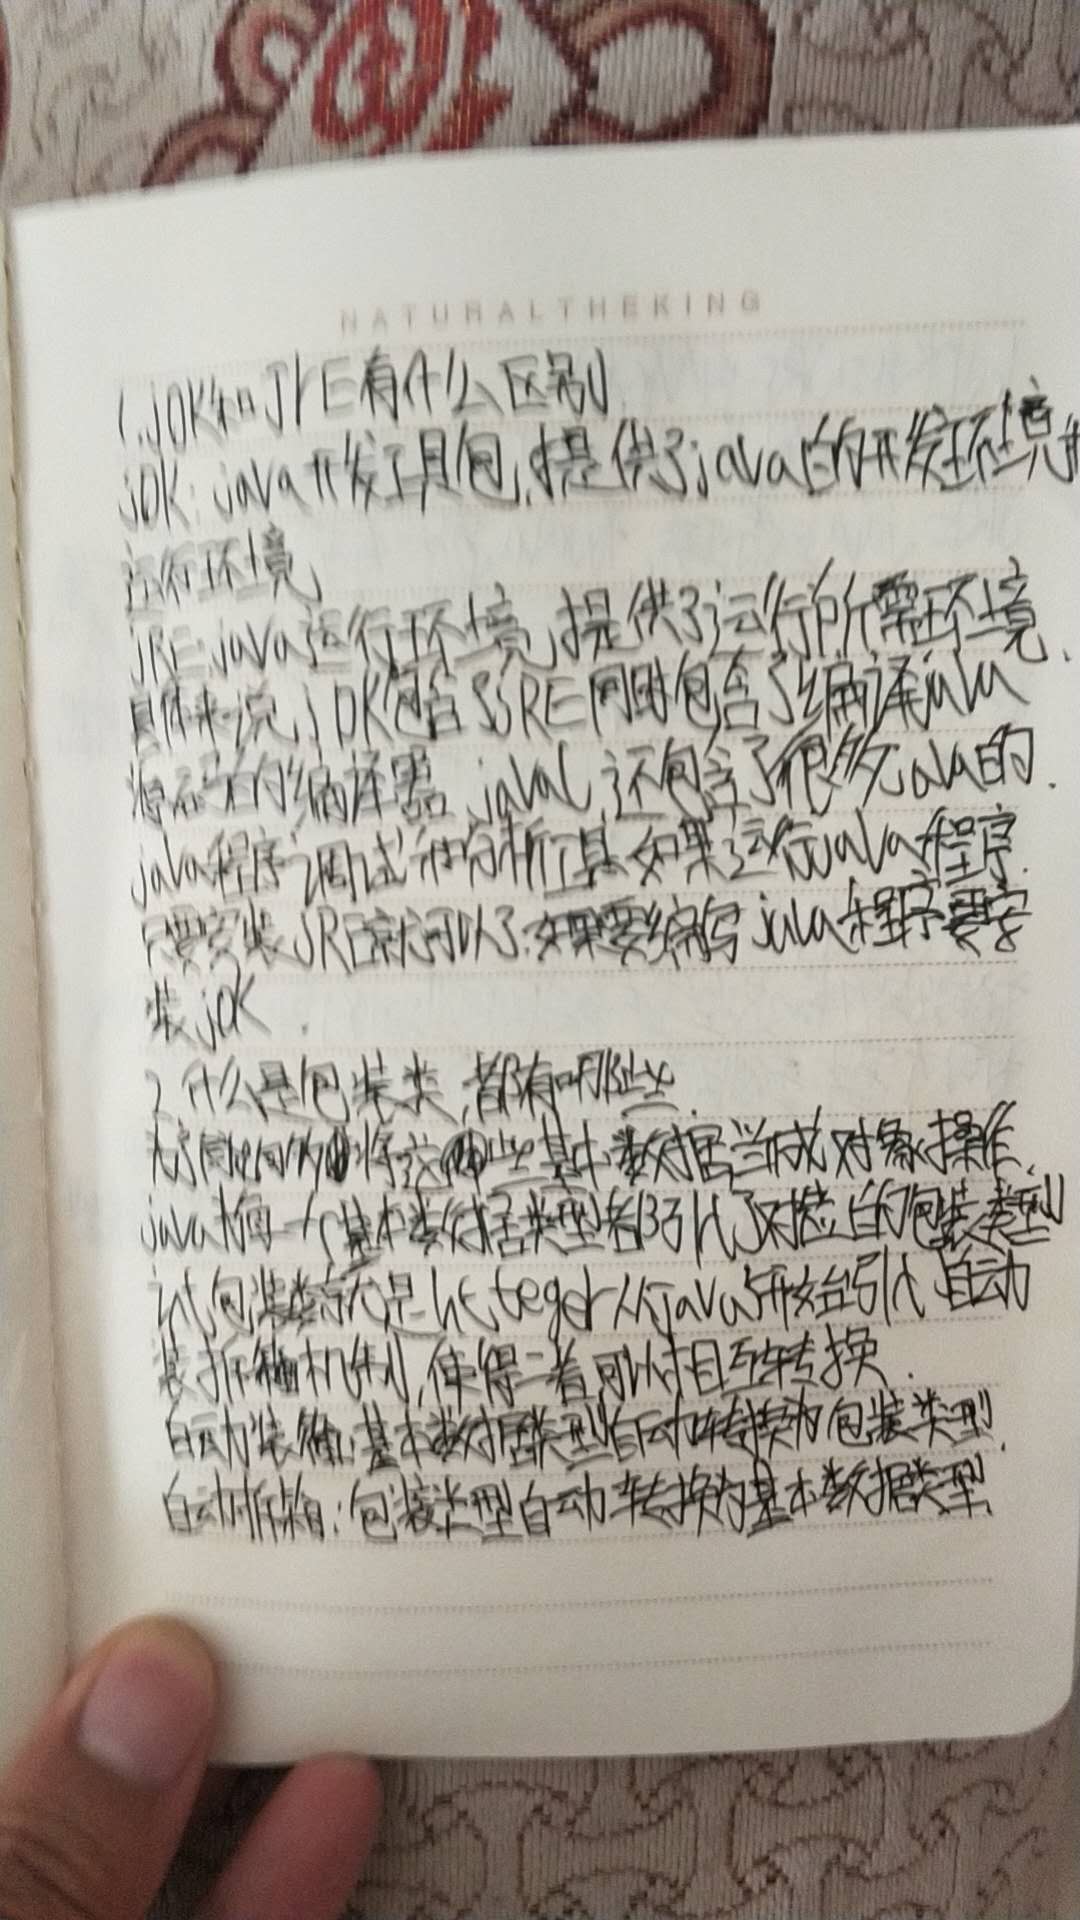 NATURALTHEKING
1.JDK和JrE有什么区别
jDK:java开发工具包,提供了java的开发环境
运行环境
JRE:java运行环境,提供了运行所需环境.
具体来说,JDK包含了JRE同时包含了编译java
源码的编译器javac,还包含了很多的
java程序调试和分析工具如果运行java程序.
只要安装JRE就可以了.如果要编写java程序需要安
装jDK.
2.什么是包装类,都有哪些.
将这些基本数据当成对象操作.
java为每一个基本数据类型都引入了对应的包装类型
int包装类就是Integer从java5开始引入自动
装拆箱机制,使得二者可以相互转换.
自动装箱:基本数据类型自动转换为包装类型.
自动拆箱:包装类型自动转换为基本数据类型.